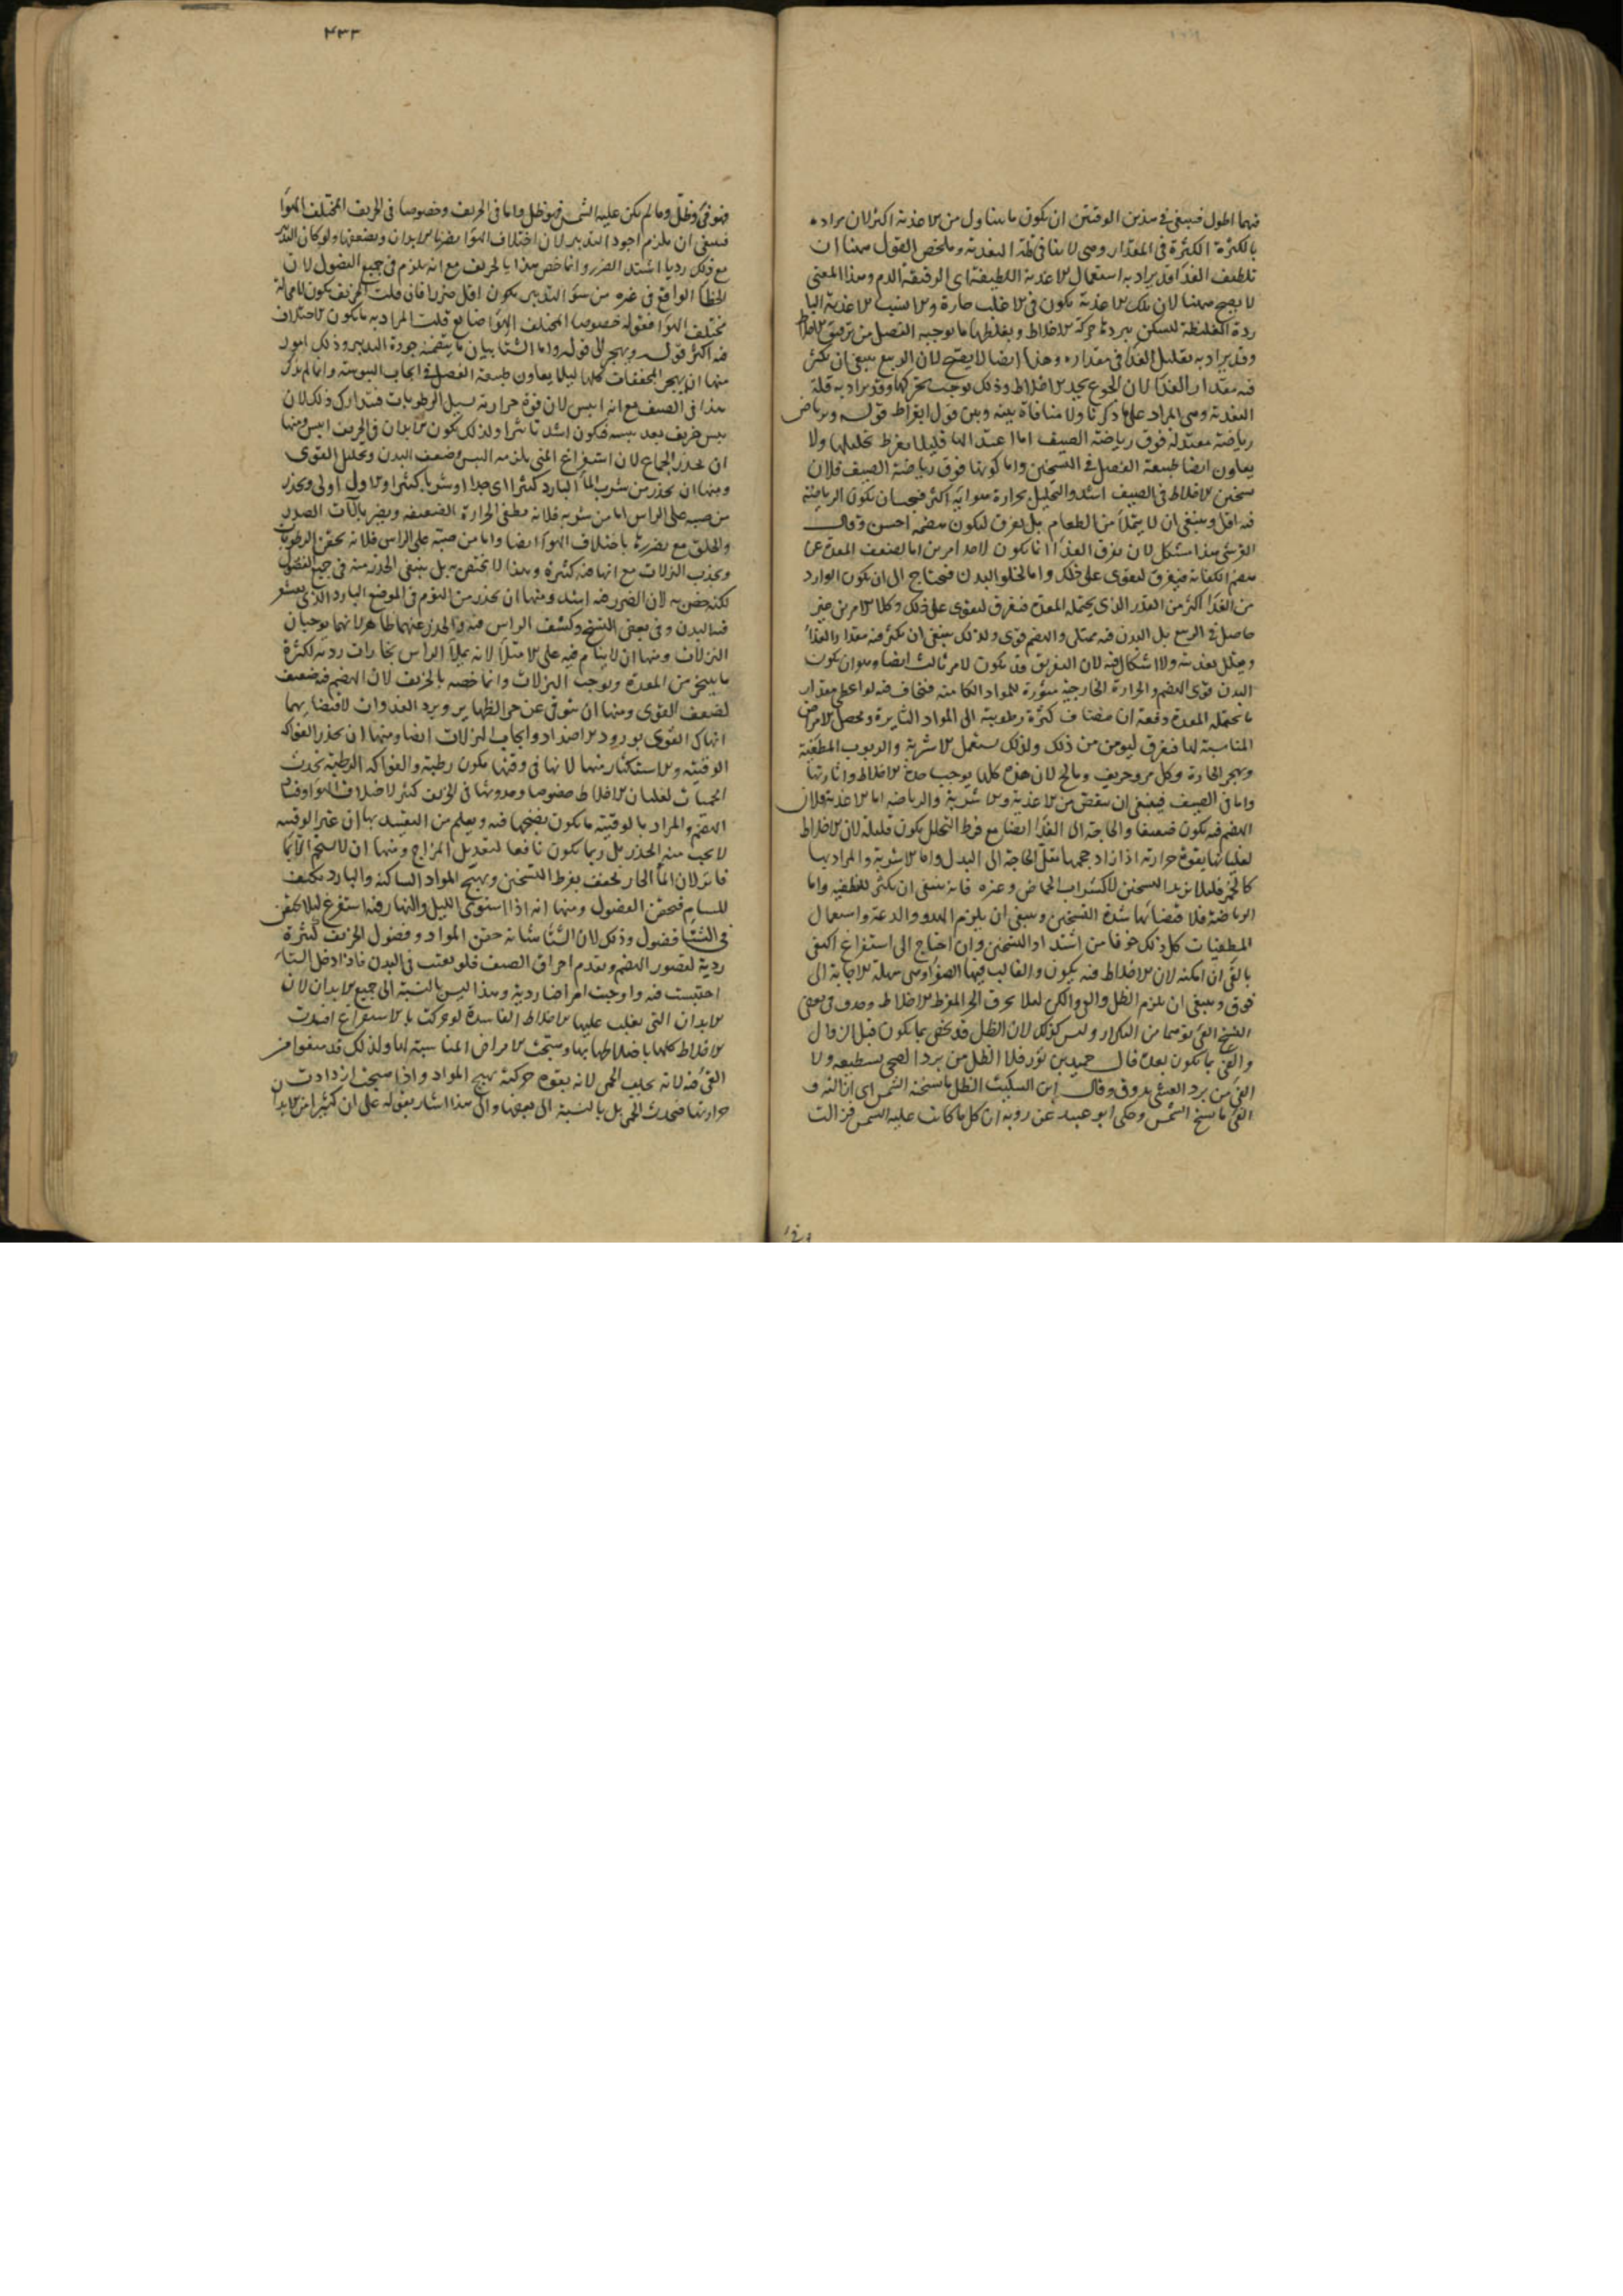 فيهما اطول فينبغي في هذين الوقتين ان يكون ما يتناول من الاغذية اكثر لان مراده
بالكثرة الكثرة في المقدار وهي لا ينافي قلة التغذية وملخص القول ههنا ان
تلطيف الغذا قد يراد به استعمال الاغذية اللطيفة اى الرقيقة الدم وهذا المعنى
لا يصح ههنا لان تلك الاغذية يكون في الاغلب حارة والانسب الاغذية البا
ردة الغليظة ليسكن ببردها حركة الاخلاط وبغلظها ما يوجبه الفصل من ترقيق الاخلاط
وقد يراد به تقليل الغذا في مقداره وهذا ايضا لا يصح لان الربيع ينبغي ان يكثر
فيه مقدار الغذا لان الجوع يحد الاخلاط وذلك يوجب تحركها وقد يراد به قلة
التغذية وهي المراد على ما ذكرنا ولا منافاة بينه وبين قول ابقراط قوله ويرتاض
رياضة معتدلة فوق رياضة الصيف اما اعتدالها فليلا يفرط تحليلها ولا
يعاون ايضا طبيعة الفصل في التسخين واما كونها فوق رياضة الصيف فلان
سخين الاخلاط في الصيف اشد والتحليل بحرارة هوايه اكثر فيجب ان يكون الرياضة
فيه اقل وينبغي ان لا يتملا من الطعام بل يفرق ليكون هضمه احسن وقال
القرشي هذا مشكل لان تفرق الغذا انما يكون لاحد امرين اما لضعف المعدة عن
هضم الكفاية فيفرق ليقوى على ذلك واما لخلو البدن فيحتاج الى ان يكون الوارد
من الغذا اكثر من القدر الذى يحتمله المعدة فيفرق ليقوى على ذلك وكلا الامرين غير
حاصل في الربيع بل البدن فيه ممتلى والهضم قوى ولذلك ينبغي ان يكثر فيه مقدار الغذا
ويقلل تغذيته ولا اشكال فيه لان التفريق قد يكون لامر ثالث ايضا وهو ان يكون
البدن قوى الهضم والحرارة الخارجية مثورة للمواد الكامنة فيخاف فيه لو اعطى مقدار
ما يحتمله المعدة دفعة ان ينضاف كثرة رطوبته الى المواد الثايرة ويحصل الامراض
المناسبة لها فيفرق ليومن من ذلك ولذلك يستعمل الاشربة والربوب المطفية
ويهجر الحارة وكل مر وحريف ومالح لان هذه كلها يوجب حدة الاخلاط واثارتها
واما في الصيف فينبغي ان ينقص من الاغذية والاشربة والرياضة اما الاغذية فلان
الهضم فيه يكون ضعيفا والحاجة الى الغذا ايضا مع فرط التحلل يكون قليلة لان الاخلاط
لغليانها بقوة حرارته اذا ازداد حجمها تقل الحاجة الى البدل واما الاشربة والمراد بها
كالخمر فليلا يزيد التسخين لا كشراب الحماض وغيره فانه ينبغي ان يكثر للتطفية واما
الرياضة فلاقتضائها شدة التسخين وينبغي ان يلزم الهدو والدعة واستعمال
المطفيات كل ذلك خوفا من اشتداد التسخين وان احتاج الى استفراغ اكتفى
بالقى ان امكنه لان الاخلاط فيه يكون والغالب فيها الصفرا وهي سهلة الاجابة الى
فوق وينبغي ان يلزم الظل والفى والكن ليلا يحرق الحر المفرط الاخلاط وحذف في بعض
النسخ الفى توهما من التكرار وليس كذلك لان الظل قد يخص بما يكون قبل الزوال
والفى بما يكون بعده قال حميد بن ثور فلا الظل من برد الضحى تستطيعه ولا
الفى من برد العشى تذوق وقال ابن السكيت الظل ما نسخته الشمس اى ازالته و
الفى ما نسخ الشمس وحكى ابو عبيد عن روبة ان كل ما كانت عليه الشمس فزالت
۴۳۳
فهو فى وظل وما لم يكن عليه الشمس فهو ظل واما في الخريف وخصوصا في الخريف المختلف الهوا
فينبغي ان يلزم اجود التدبير لان اختلاف الهوا يضر بالابدان ويضعفها ولو كان التدبير
مع ذلك رديا اشتد الضرر وانما خص هذا بالخريف مع انه يلزم في جميع الفصول لان
الخطا الواقع في غيره من سؤ التدبير يكون اقل ضررا فان قلت الخريف يكون لا محالة
مختلف الهوا فقوله خصوصا المختلف الهوا ضايع قلت المراد به ما يكون الاختلاف
فيه اكثر قوله ويهجر الى قوله واما الشتا بيان ما يتضمنه جودة التدبير وذلك امور
منها ان يهجر المجففات كلها ليلا يعاون طبيعة الفصل في ايجاب اليبوسة وانما لم يذكر
هذا في الصيف مع انه ايبس لان قوة حرارته يسيل الرطوبات فيتدارك ذلك لان
يبس خريف بعد يبسه فيكون اشد تاثيرا ولذلك يكون الابدان في الخريف ايبس ومنها
ان يحذر الجماع لان استفراغ المنى يلزمه اليبس وضعف البدن وتحليل القوى
ومنها ان يحذر من شرب الما البارد كثيرا اى جدا او شربا كثيرا والاول اولى ويحذر
من صبه على الراس اما من شربه فلانه مطفى الحرارة الضعيفة ويضر بآلات الصدر
والحلق مع تضررها باختلاف الهوا ايضا واما من صبه على الراس فلانه يحقن الرطوبات
ويجذب النزلات مع انها فيه كثيرة وهذا لا يختص به بل ينبغي الحذر منه في جميع الفصول
لكنه خص به لان الضرر فيه اشد ومنها ان يحذر من النوم في الموضع البارد الذى يقشعر
فيه البدن وفي بعض النسخ وكشف الراس فيه والحذر عنهما ظاهر لانهما يوجبان
النزلات ومنها ان لا ينام فيه على الامتلا لانه يملا الراس بخارات ردية لكثرة
ما يتبخر من المعدة ويوجب النزلات وانما خصه بالخريف لان الهضم فيه ضعيف
لضعف القوى ومنها ان يتوقى عن حر الظهاير وبرد الغدوات لاقتضائهما
انهاك القوى بورود الاضداد وايجاب النزلات ايضا ومنها ان يحذر الفواكه
الوقتية والاستكثار منها لانها في وقتها يكون رطبة والفواكه الرطبة تحدث
الحميات لغليان الاخلاط خصوصا وحدوثها في الخريف كثير لاختلاف الهوا وفساد
الهضم والمراد بالوقتية ما يكون نضجها فيه ويعلم من التقييد بها ان غير الوقتية
لا يجب منه الحذر بل ربما يكون نافعا لتعديل المزاج ومنها ان لا يستحم الا بما
فاتر لان الما الحار يجفف بفرط التسخين ويهيج المواد الساكنة والبارد يكثف
المسام فيحقن الفضول ومنها انه اذا استوى الليل والنهار فيه استفرغ ليلا يحتقن
في الشتا فضول وذلك لان الشتا شانه حقن المواد وفضول الخريف كثيرة
ردية لقصور الهضم وتقدم احراق الصيف فلو بقيت في البدن فاذا دخل الشتا
احتبست فيه واوجبت امراضا ردية وهذا ليس بالنسبة الى جميع الابدان لان
الابدان التي يغلب عليها الاخلاط الفاسدة لو حركت بالاستفراغ افسدت
الاخلاط كلها باختلاطها بها وينتج الامراض المناسبة لها ولذلك قد منعوا من
القى فيه لانه يجلب الحمى لانه بقوة حركته يهيج المواد واذا هيجت ازدادت
حرارتها فيحدث الحمى بل بالنسبة الى بعضها والى هذا اشار بقوله على ان كثيرا من الابدان